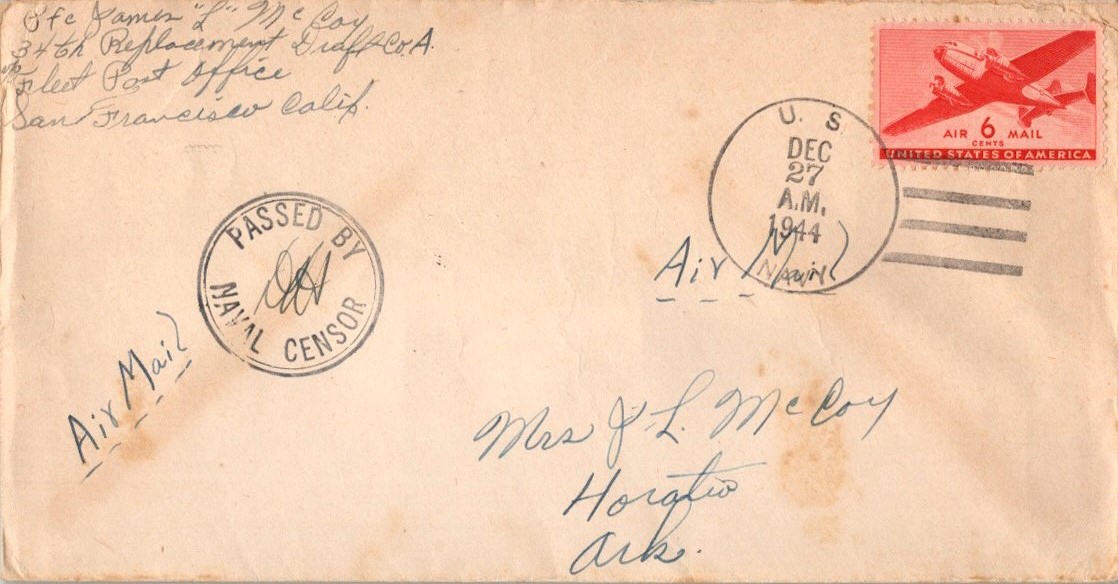 Pfc James "L" McCoy
34th Replacement Draft Co. A.
c/o Fleet Post Office
San Francisco Calif.
AIR 6 MAIL
CENTS
UNITED STATES OF AMERICA
U. S.
DEC
27
A.M.
1944
NAVY
PASSED BY
NAVAL CENSOR
Air Mail
Air Mail
Mrs J L. McCoy
Horatio
Ark.